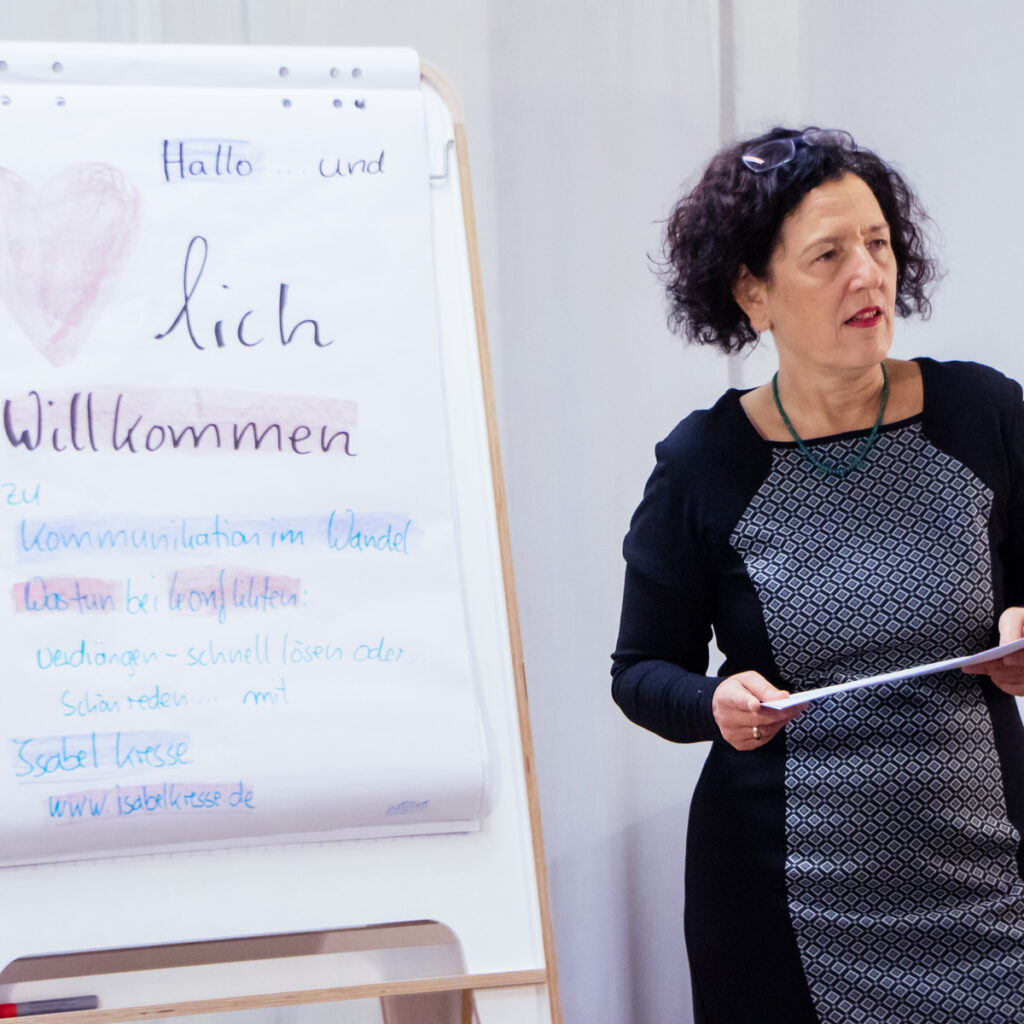 Hallo ... und
lich
Willkommen
zu
Kommunikation im Wandel
Was tun bei konflikten:
verdrängen - schnell lösen oder...
Schön reden ... mit
Isabel Kresse
www.isabelkresse.de